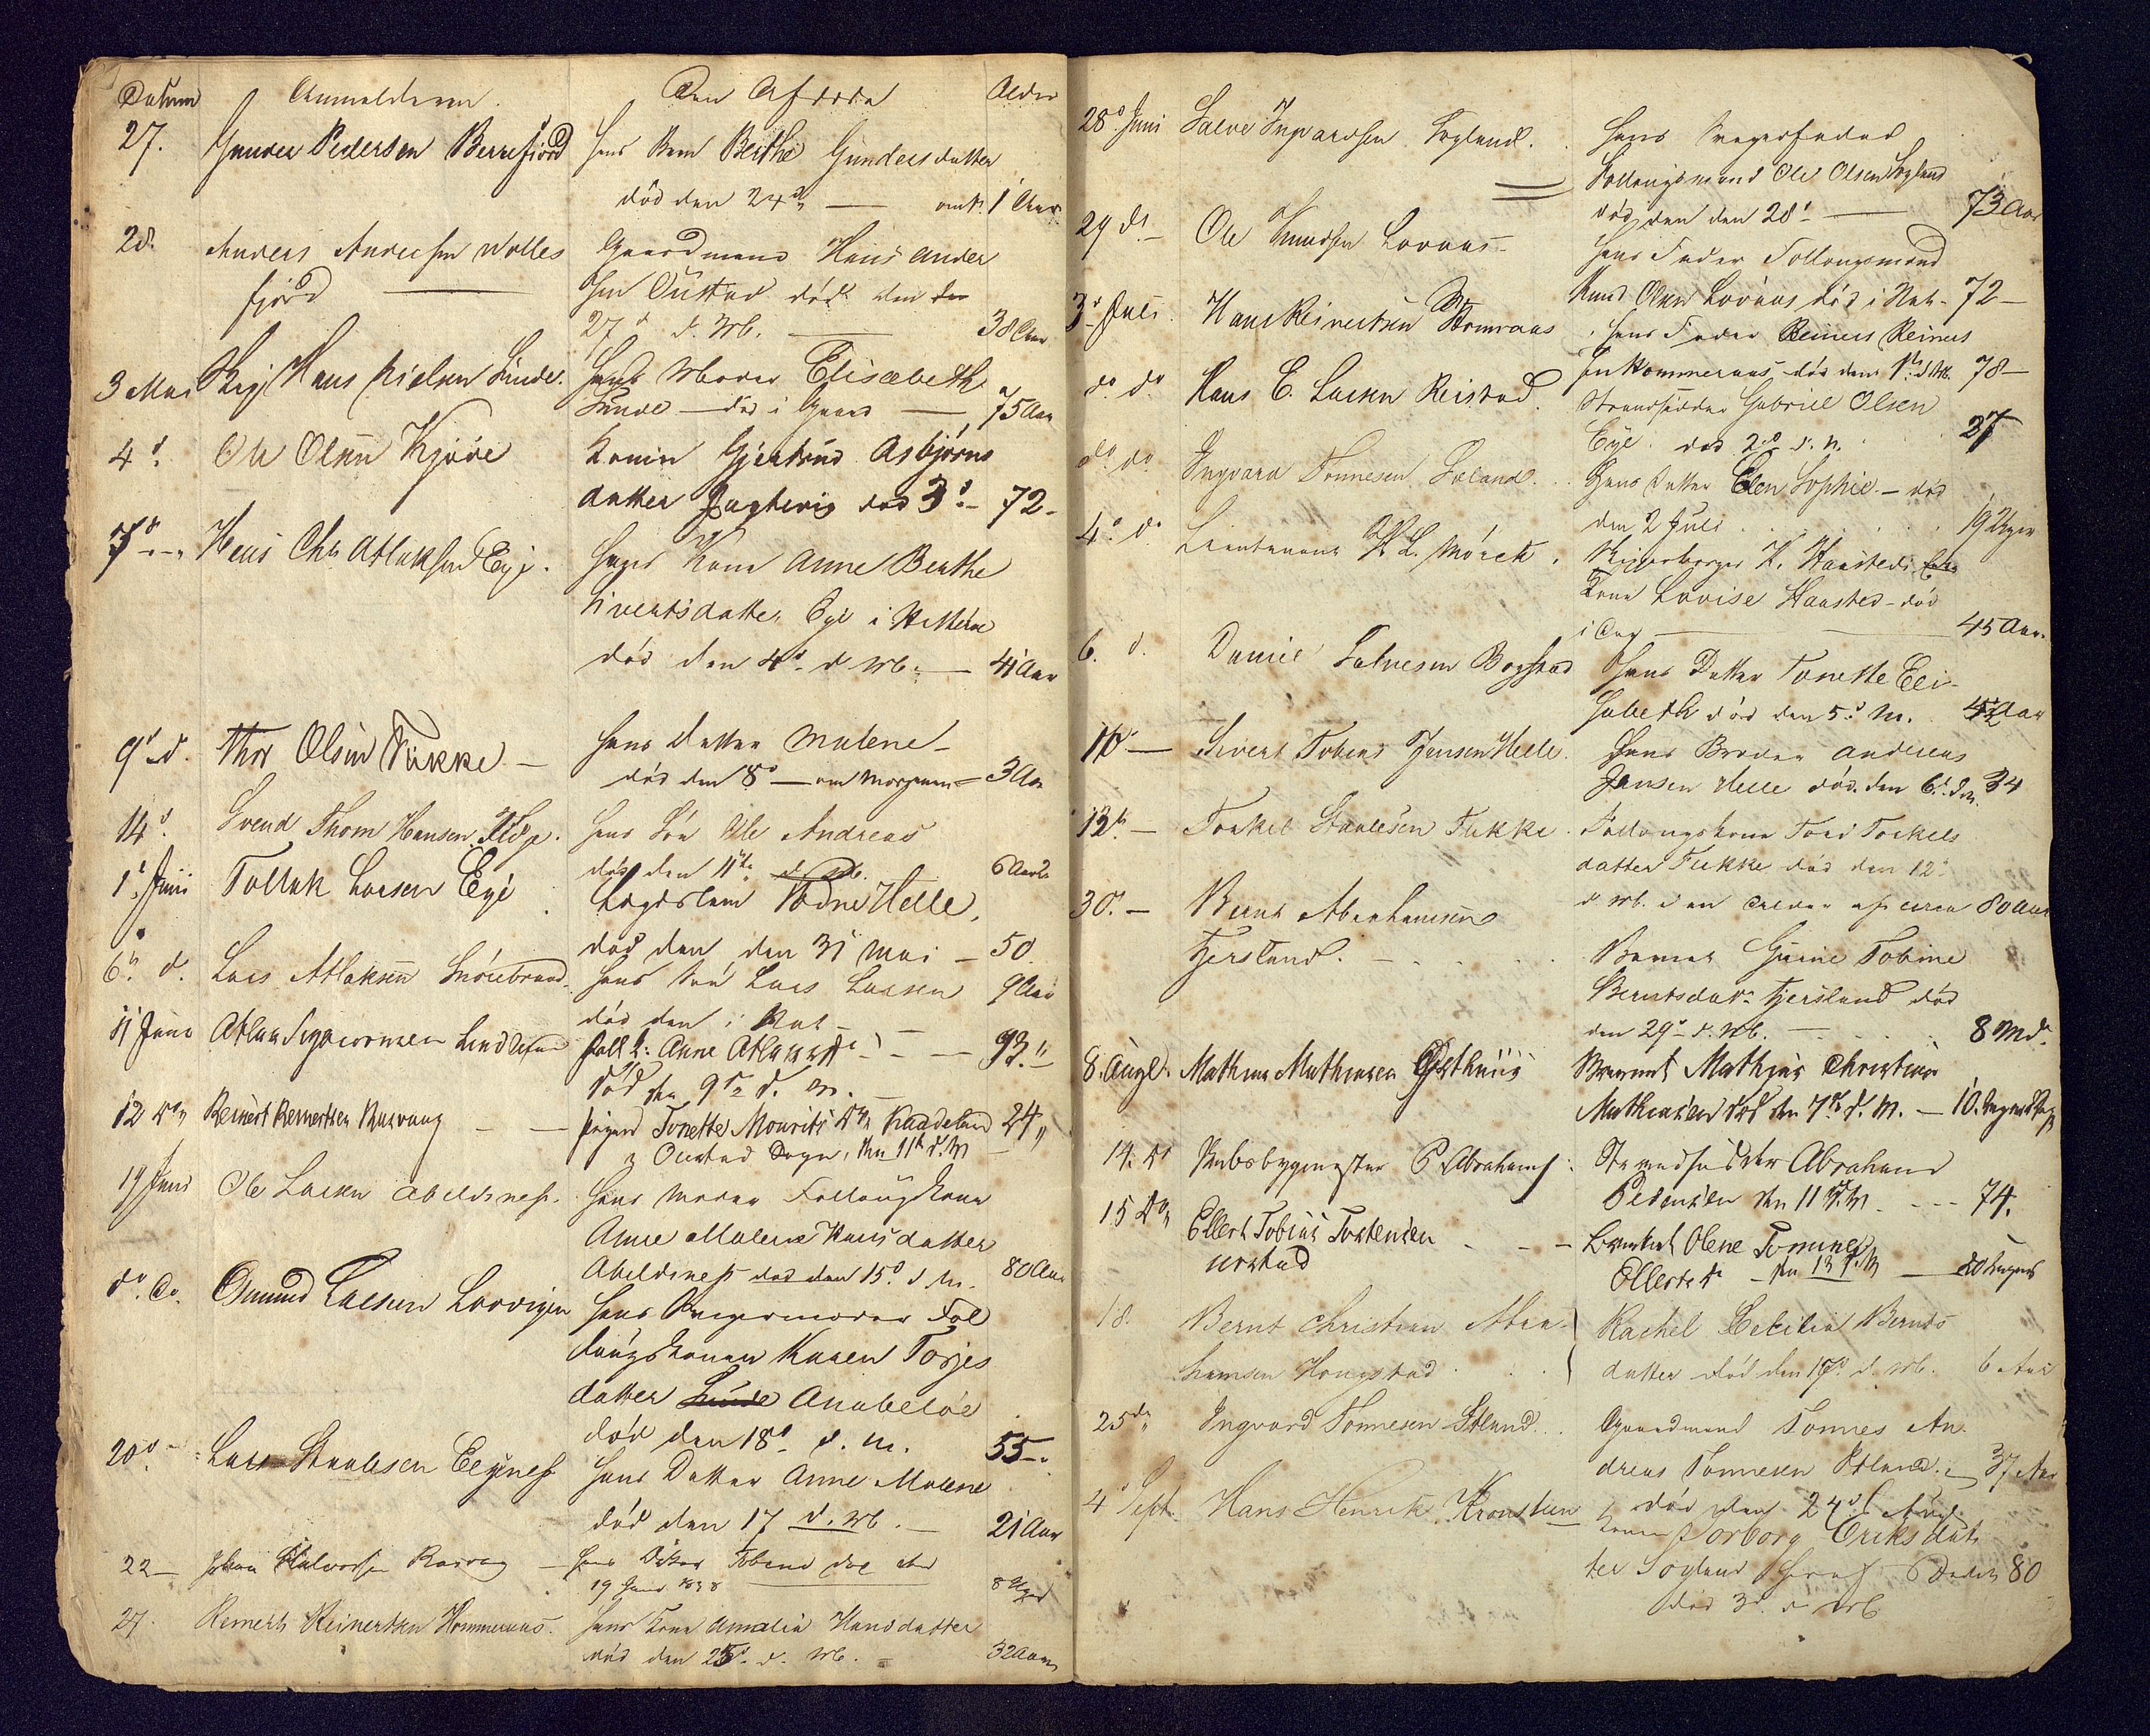 Datum Anmelderen. Den Afdøde Alder
27. Gunder Pedersen Berrefjord hans Barn Berthe Gundersdatter
død den 24de — omtr. 1 Aar
28. Anders Andersen Wolles Gaardmand Hans Ander
fjord — sen Oustad død den
27d d. Mb. — 38 Aar
3 Mai Hans Nielsen Sunde. Hans Moder Elisabeth
Sunde — død i Gaar — 75 Aar
4d. Ole Olsen Kjøre Konen Gjertrud Asbjørns
datter død 3d. — 72 -
7d - " Hans Chr. Atlaksen Eye. Hans Kone Anne Berthe
Sivertsdatter Eye i Hitterøe
død den 4d. d. Mb. — 41 Aar
9d d. Thor Olsen Fukke — hans Datter Malene —
død den 8d — om Morgenen — 3 Aar
14d. Svend Thom Hansen hans Søn Ole Andreas
død den 11te d. Mb. 6 Aar
1d Juni Tollak Larsen Eye Logislem Helle,
død den 31 Mai — 50
6te d. Lars Atlaksen hans Søn Lars Larsen 9 Aar
død den i Nat —
11 Juni Atlak Anne Atlaksdr — 93 "
død den 9de d. M. —
12 do " Reinert Reinertsen Rasvaag — Pigen Tonette Mouritsdr Raadeland 24 "
Oustad Sogn, den 11te d. M
19 Juni Ole Larsen Abelsnes. hans Moder Follougskone
Anne Malene Hansdatter
Abelsnes død den 15d. d. M. 80 Aar
do do. Omund Larsen Larvigen hans Svigermoder Fol
lougskonen Karen Torjes
datter Sunde Anabeløe
død den 18d. d. M. 55 — "
20d. — Lars Staalesen Eeyenes hans Datter Anne Malene
død den 17 d. Mb. — 21 Aar
22 — Johan Halvorsen Rasvag — hans Datter død den
19 Juni 1838 — 8 Uger
27. Reinert Reinertsen Hommeraas. hans Kone Amalia Hansdatter
død den 25d. d. Mb. — 32 Aar
28d. Juni Salve Ingvardsen Sogland. Hans Svigerfader
Follougsmand Ole Olsen Sogland
død den den 28d. — 73 Aar
29 d. — Ole Knudsen Lovaas — hans Fader Follougsmand
Knud Olsen Lovaas død i Nat — 72 —
3d Juli Hans Reinertsen hans Fader Reinert Reinert
sen Hommeraas død den 1te d. Mb. 78 —
do. do. Hans E. Larsen Reistad. Strandsidder Gabriel Olsen
Eye. død 2d d. M. . 27
do. do. Ingvard Tonnesen . . Hans Datter Elen Sophie. — død
den 2 Juli . . . 19 Uger
4d. d. Lieutenant L. Mörck . K. Haasteds
Kone Lovise Haasted — død
i Dag — 45 Aar.
6. d. Daniel Salvesen Bogstad Hans Datter Tonette Eli-
sabeth død den 5d. M. 4½ Aar
10 — Sivert Tobias Jensen Helle. Hans Broder Andreas
Jensen Helle død den 6d. d. M. 34
13te — Torkel Staalesen Fukke . Follougskone Torkels
datter Fukke død den 12d
d. Mb. i en Alder af circa 80 Aar
30d. — Bernt Abrahamsen
Fjersland. — . . . Barnet Tobine
Berntsdatr Fjersland død
den 29d d. Mb. — 8 Md.
8. Augt. Mathias Mathiasen Østhuus Barnet Mathias Christian
Mathiasen død den 7de d. M. — 10.
14. do Skibsbygmester P. Abrahams : Strandsidder Abraham
Pedersen den 11 d. M. . - - - 74.
15 do " Ellert Tobias Torkensen — — —
Urstad Barnet Olene Tomine
Ellertsdr — den 13 d. M — 20 Uger
18. Bernt Christian Abra- Rachel Cecilia Bernts
hamsen Haugstad . . datter død den 17d. d. Mb. 6 Aar
25de " Ingvard Tonnesen Gaardmand Tonnes An-
dreas Tonnesen — 37 Aar
død den 24d. Aug.
4d Sept. Hans Henrik Kronstien Konen Torborg Eriksdat
ter Sogland 80
død 3d. d. Mb